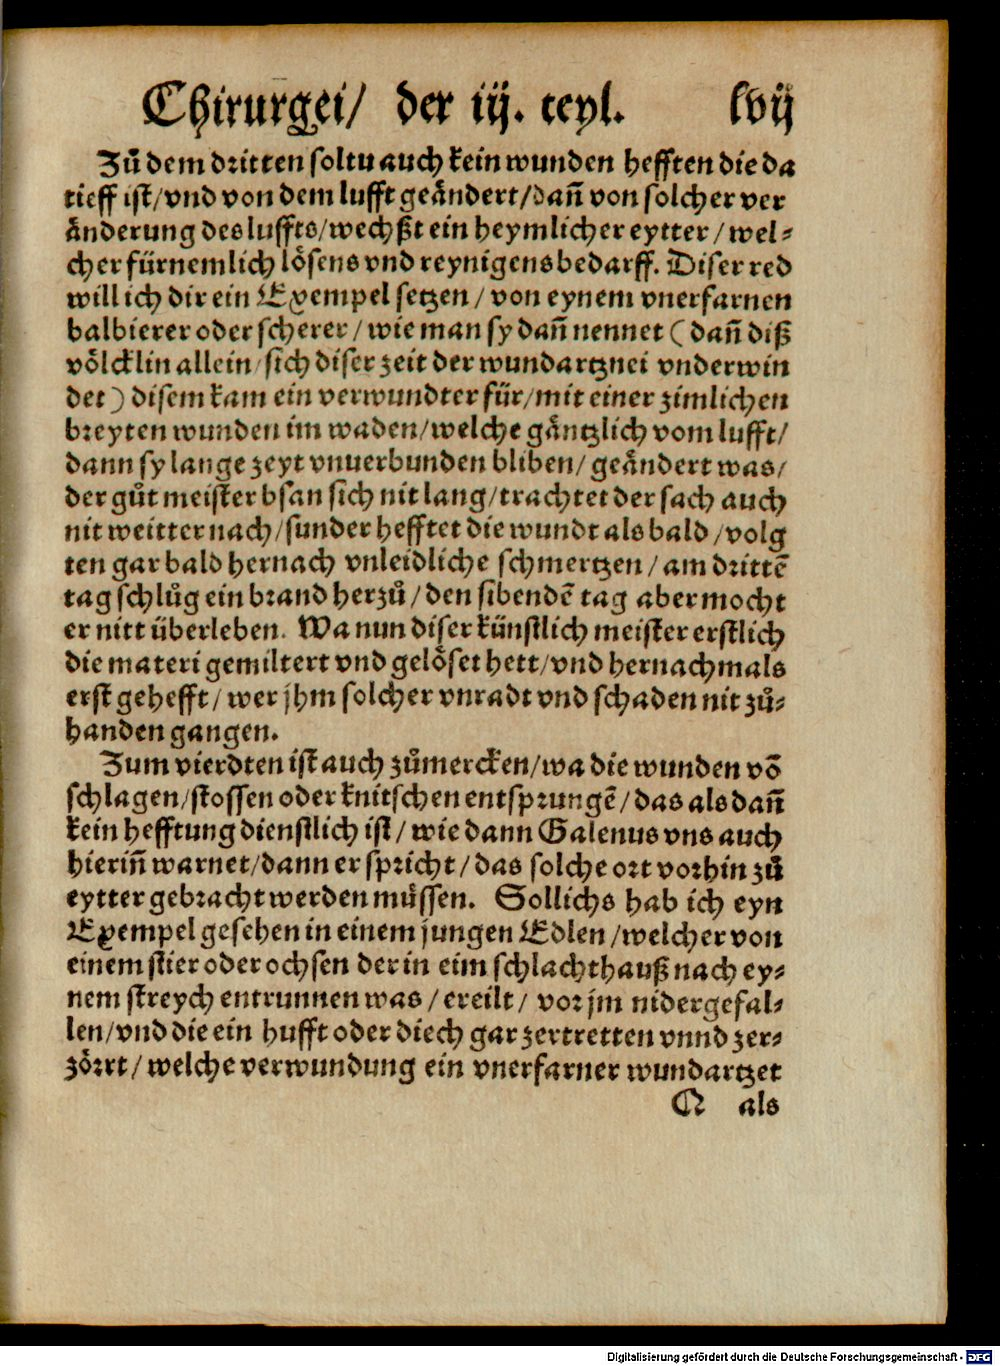 Chirurgei/ der iij. teyl. lvij
Zů dem dritten soltu auch kein wunden hefften die da
tieff ist/vnd von dem lufft geändert/dañ von solcher ver
änderung des luffts/wechßt ein heymlicher eytter/wel⸗
cher fürnemlich lösens vnd reynigens bedarff. Diser red
will ich dir ein Exempel setzen/von eynem vnerfarnen
balbierer oder scherer/wie man sy dañ nennet (dañ diß
völcklin allein/sich diser zeit der wundartznei vnderwin
det) disem kam ein verwundter für/mit einer zimlichen
breyten wunden im waden/welche gäntzlich vom lufft/
dann sy lange zeyt vnuerbunden bliben/geändert was/
der gůt meister bsan sich nit lang/trachtet der sach auch
nit weitter nach/sunder hefftet die wundt als bald/volg
ten gar bald hernach vnleidliche schmertzen/am drittē
tag schlůg ein brand herzů/den sibendē tag aber mocht
er nitt überleben. Wa nun diser künstlich meister erstlich
die materi gemiltert vnd gelöset hett/vnd hernachmals
erst gehefft/wer jhm solcher vnradt vnd schaden nit zů⸗
handen gangen.
Zum vierdten ist auch zůmercken/wa die wunden vō
schlagen/stossen oder knitschen entsprungē/das als dañ
kein hefftung dienstlich ist/wie dann Galenus vns auch
hieriñ warnet/dann er spricht/das solche ort vorhin zů
eytter gebracht werden müssen. Sollichs hab ich eyn
Exempel gesehen in einem jungen Edlen/welcher von
einem stier oder ochsen der in eim schlachthauß nach ey⸗
nem streych entrunnen was/ereilt/vor jm nidergefal⸗
len/vnd die ein hufft oder diech gar zertretten vnnd zer⸗
zörrt/welche verwundung ein vnerfarner wundartzet
Q als
Digitalisierung gefördert durch die Deutsche Forschungsgemeinschaft - DFG